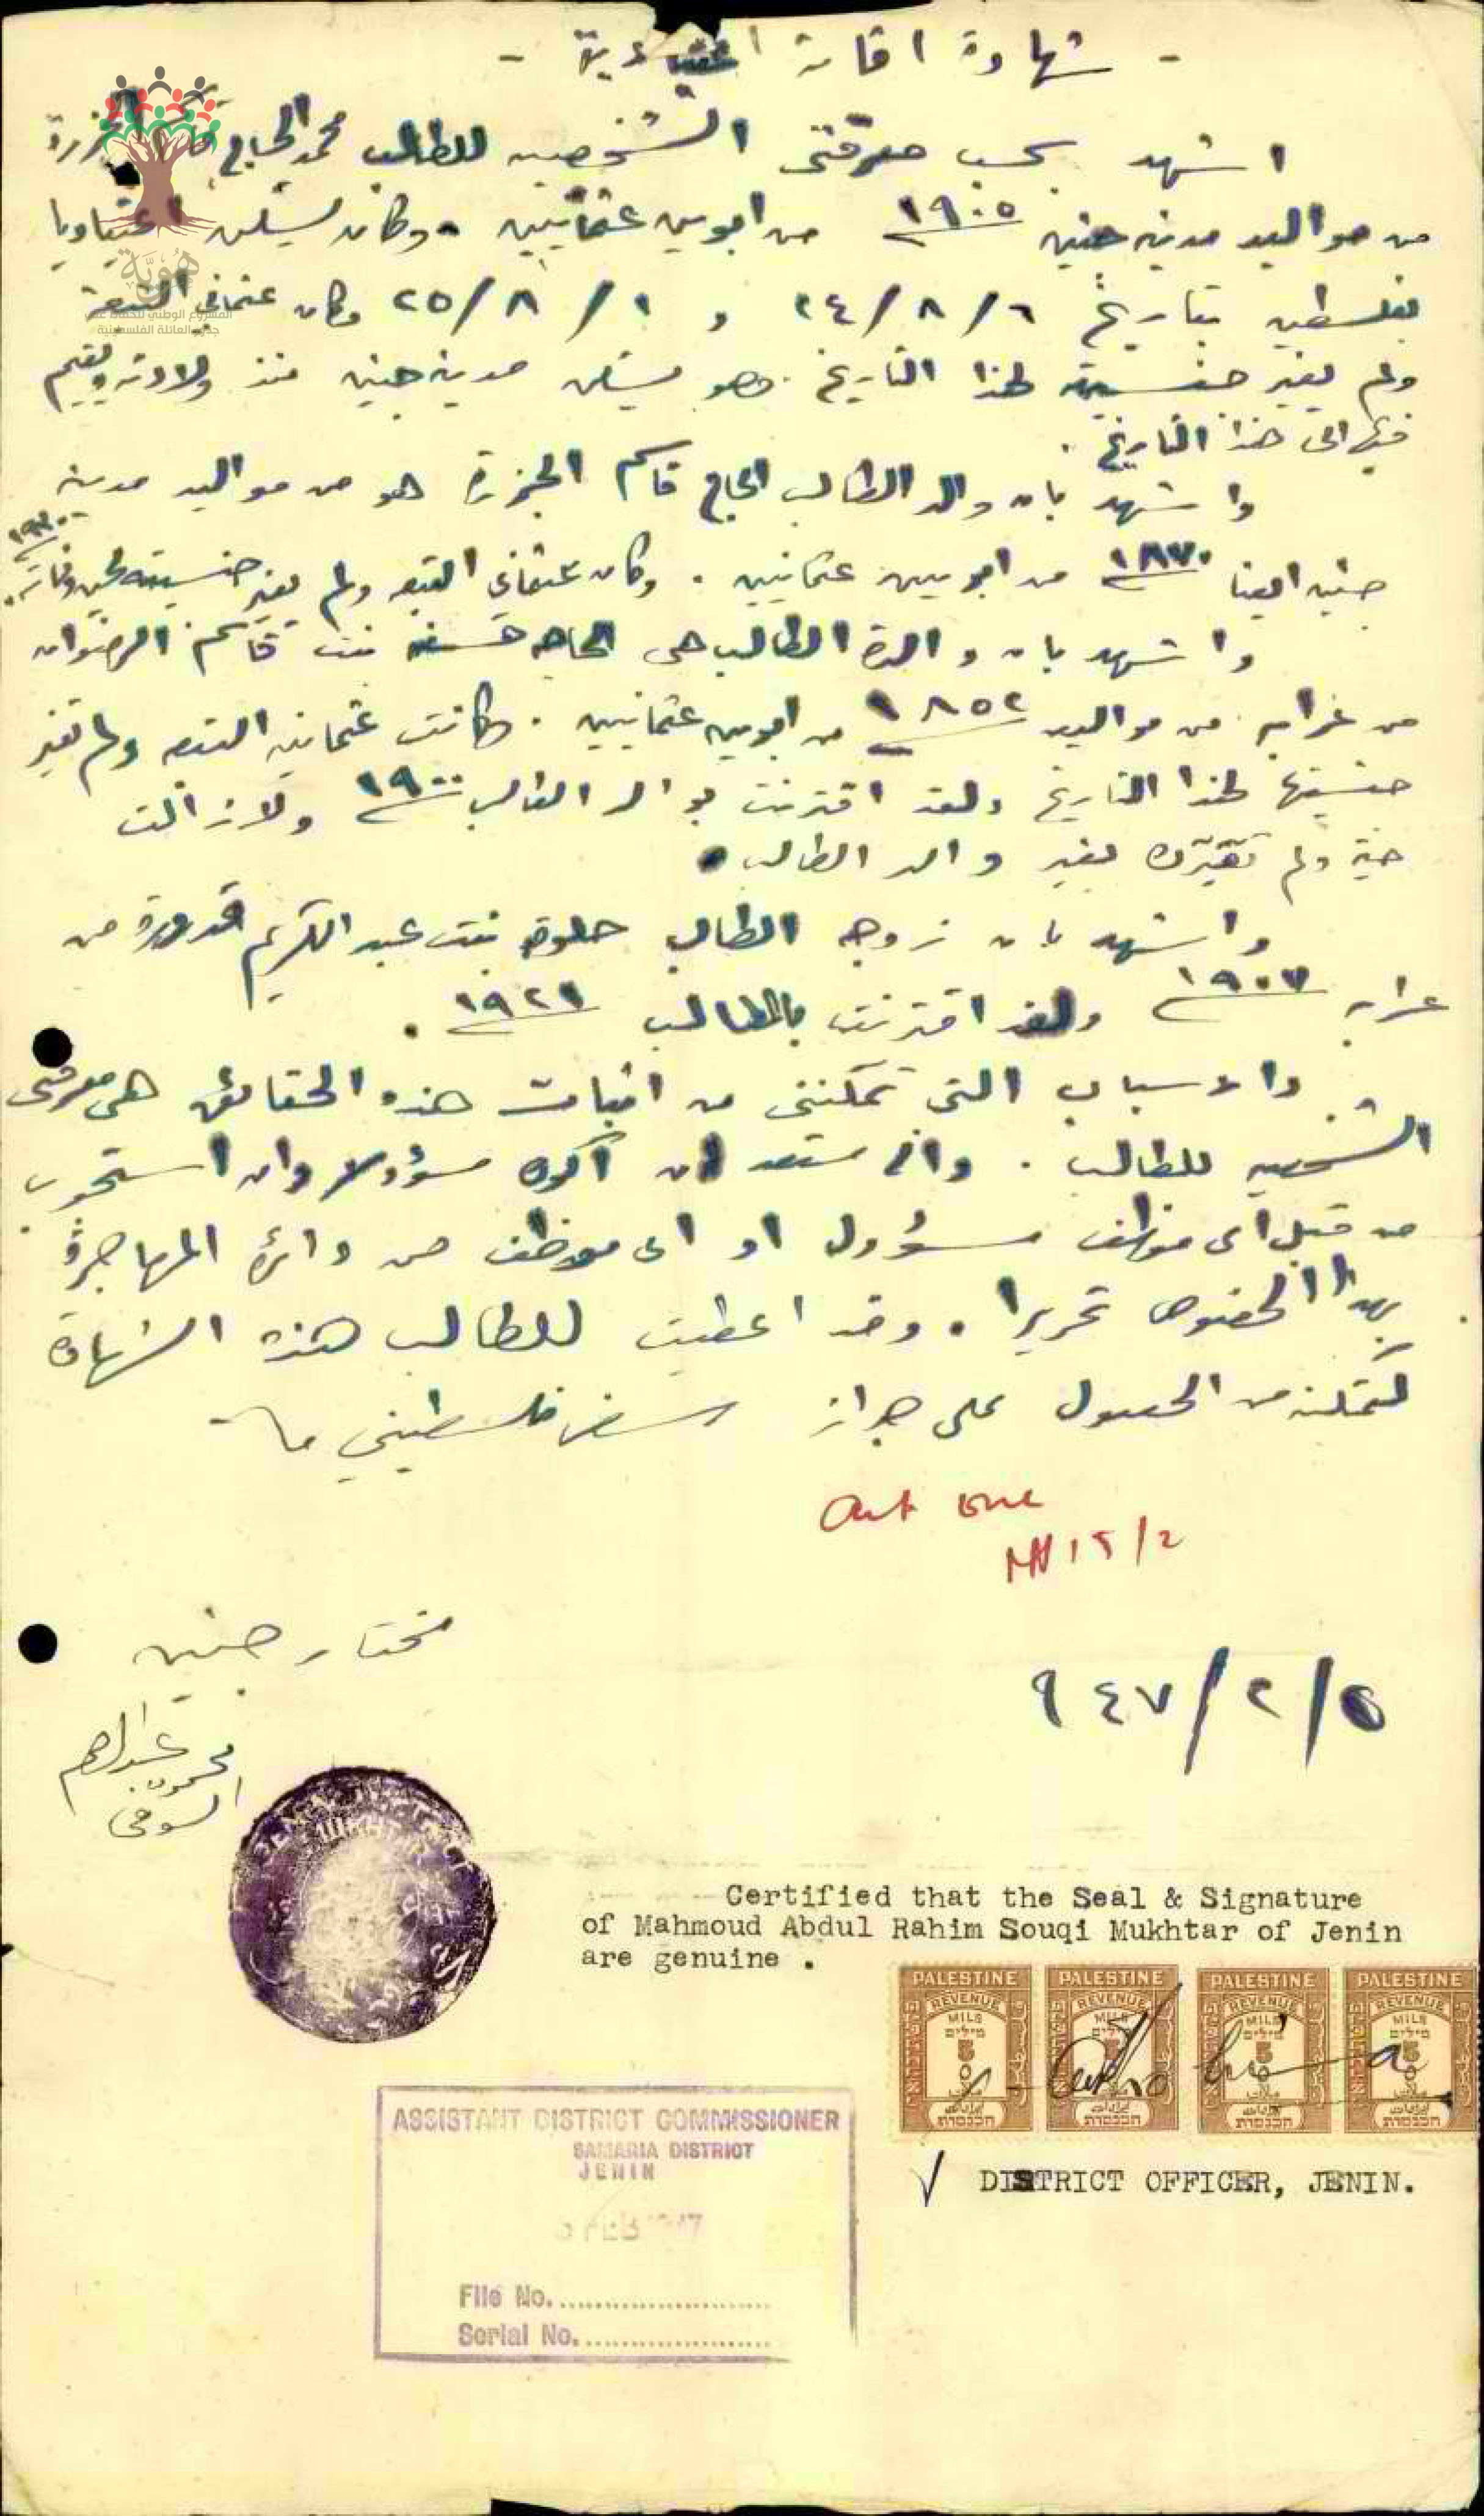 - شهادة اقامة اعتيادية -
اشهد بحسب معرفتي الشخصيه للطالب محمد الحاج قاسم الجزرة
من مواليد مدينة جنين ١٩٠٥ من ابوين عثمانيين . وكان يسكن اعتياديا
بفلسطين بتاريخ ٦ / ٨ / ٢٤ و ١ / ٨ / ٢٥ وكان عثماني التبعة
ولم يغير جنسيته لهذا التاريخ . وهو يسكن مدينة جنين منذ ولادته ويقيم
فيها الى هذا التاريخ .
واشهد بان والد الطالب الحاج قاسم الجزرة هو من مواليد مدينة
جنين ايضا ١٨٧٠ من ابويين عثمانيين . وكان عثماني التبعه ولم يغير جنسيته لحين وفاته
واشهد بان والدة الطالب هي الحاجه بنت قاسم الرضوان
من عرابه من مواليد ١٨٥٢ من ابويين عثمانيين . وكانت عثمانيه التبعه ولم تغير
جنسيتها لهذا التاريخ ولقد اقترنت بوالد الطالب ١٩٠٠ ولازالت
حية ولم تقترن بغير والد الطالب .
واشهد بان زوجه الطالب حلوة بنت عبد الكريم من
عرابه ١٩٠٧ ولقد اقترنت بالطالب ١٩٢١ .
والاسباب التي تمكنني من اثبات هذه الحقائق هي معرفتي
الشخصيه للطالب . واني مستعد ان اكون مسؤولا وان استجوب
من قبل اي موظف مسؤول او اي موظف من دائرة المهاجرة
بهذا الخصوص تحريرا . وقد اعطيت للطالب هذه الشهادة
لتمكنه من الحصول على جواز سفر فلسطيني
15/2
مختار جنين
٥ / ٢ / ٩٤٧
محمود عبد الرحيم
السوقي
Certified that the Seal & Signature
of Mahmoud Abdul Rahim Souqi Mukhtar of Jenin
are genuine .
PALESTINE PALESTINE PALESTINE PALESTINE
REVENUE REVENUE REVENUE REVENUE
MILS MILS MILS MILS
מילים מילים מילים מילים
5 5 5 5
הכנסות הכנסות הכנסות הכנסות
ASSISTANT DISTRICT COMMISSIONER
SAMARIA DISTRICT
JENIN
5 FEB 1947
File No.
Serial No.
DISTRICT OFFICER, JENIN.
هوية
المشروع الوطني للحفاظ على
جذور العائلة الفلسطينية